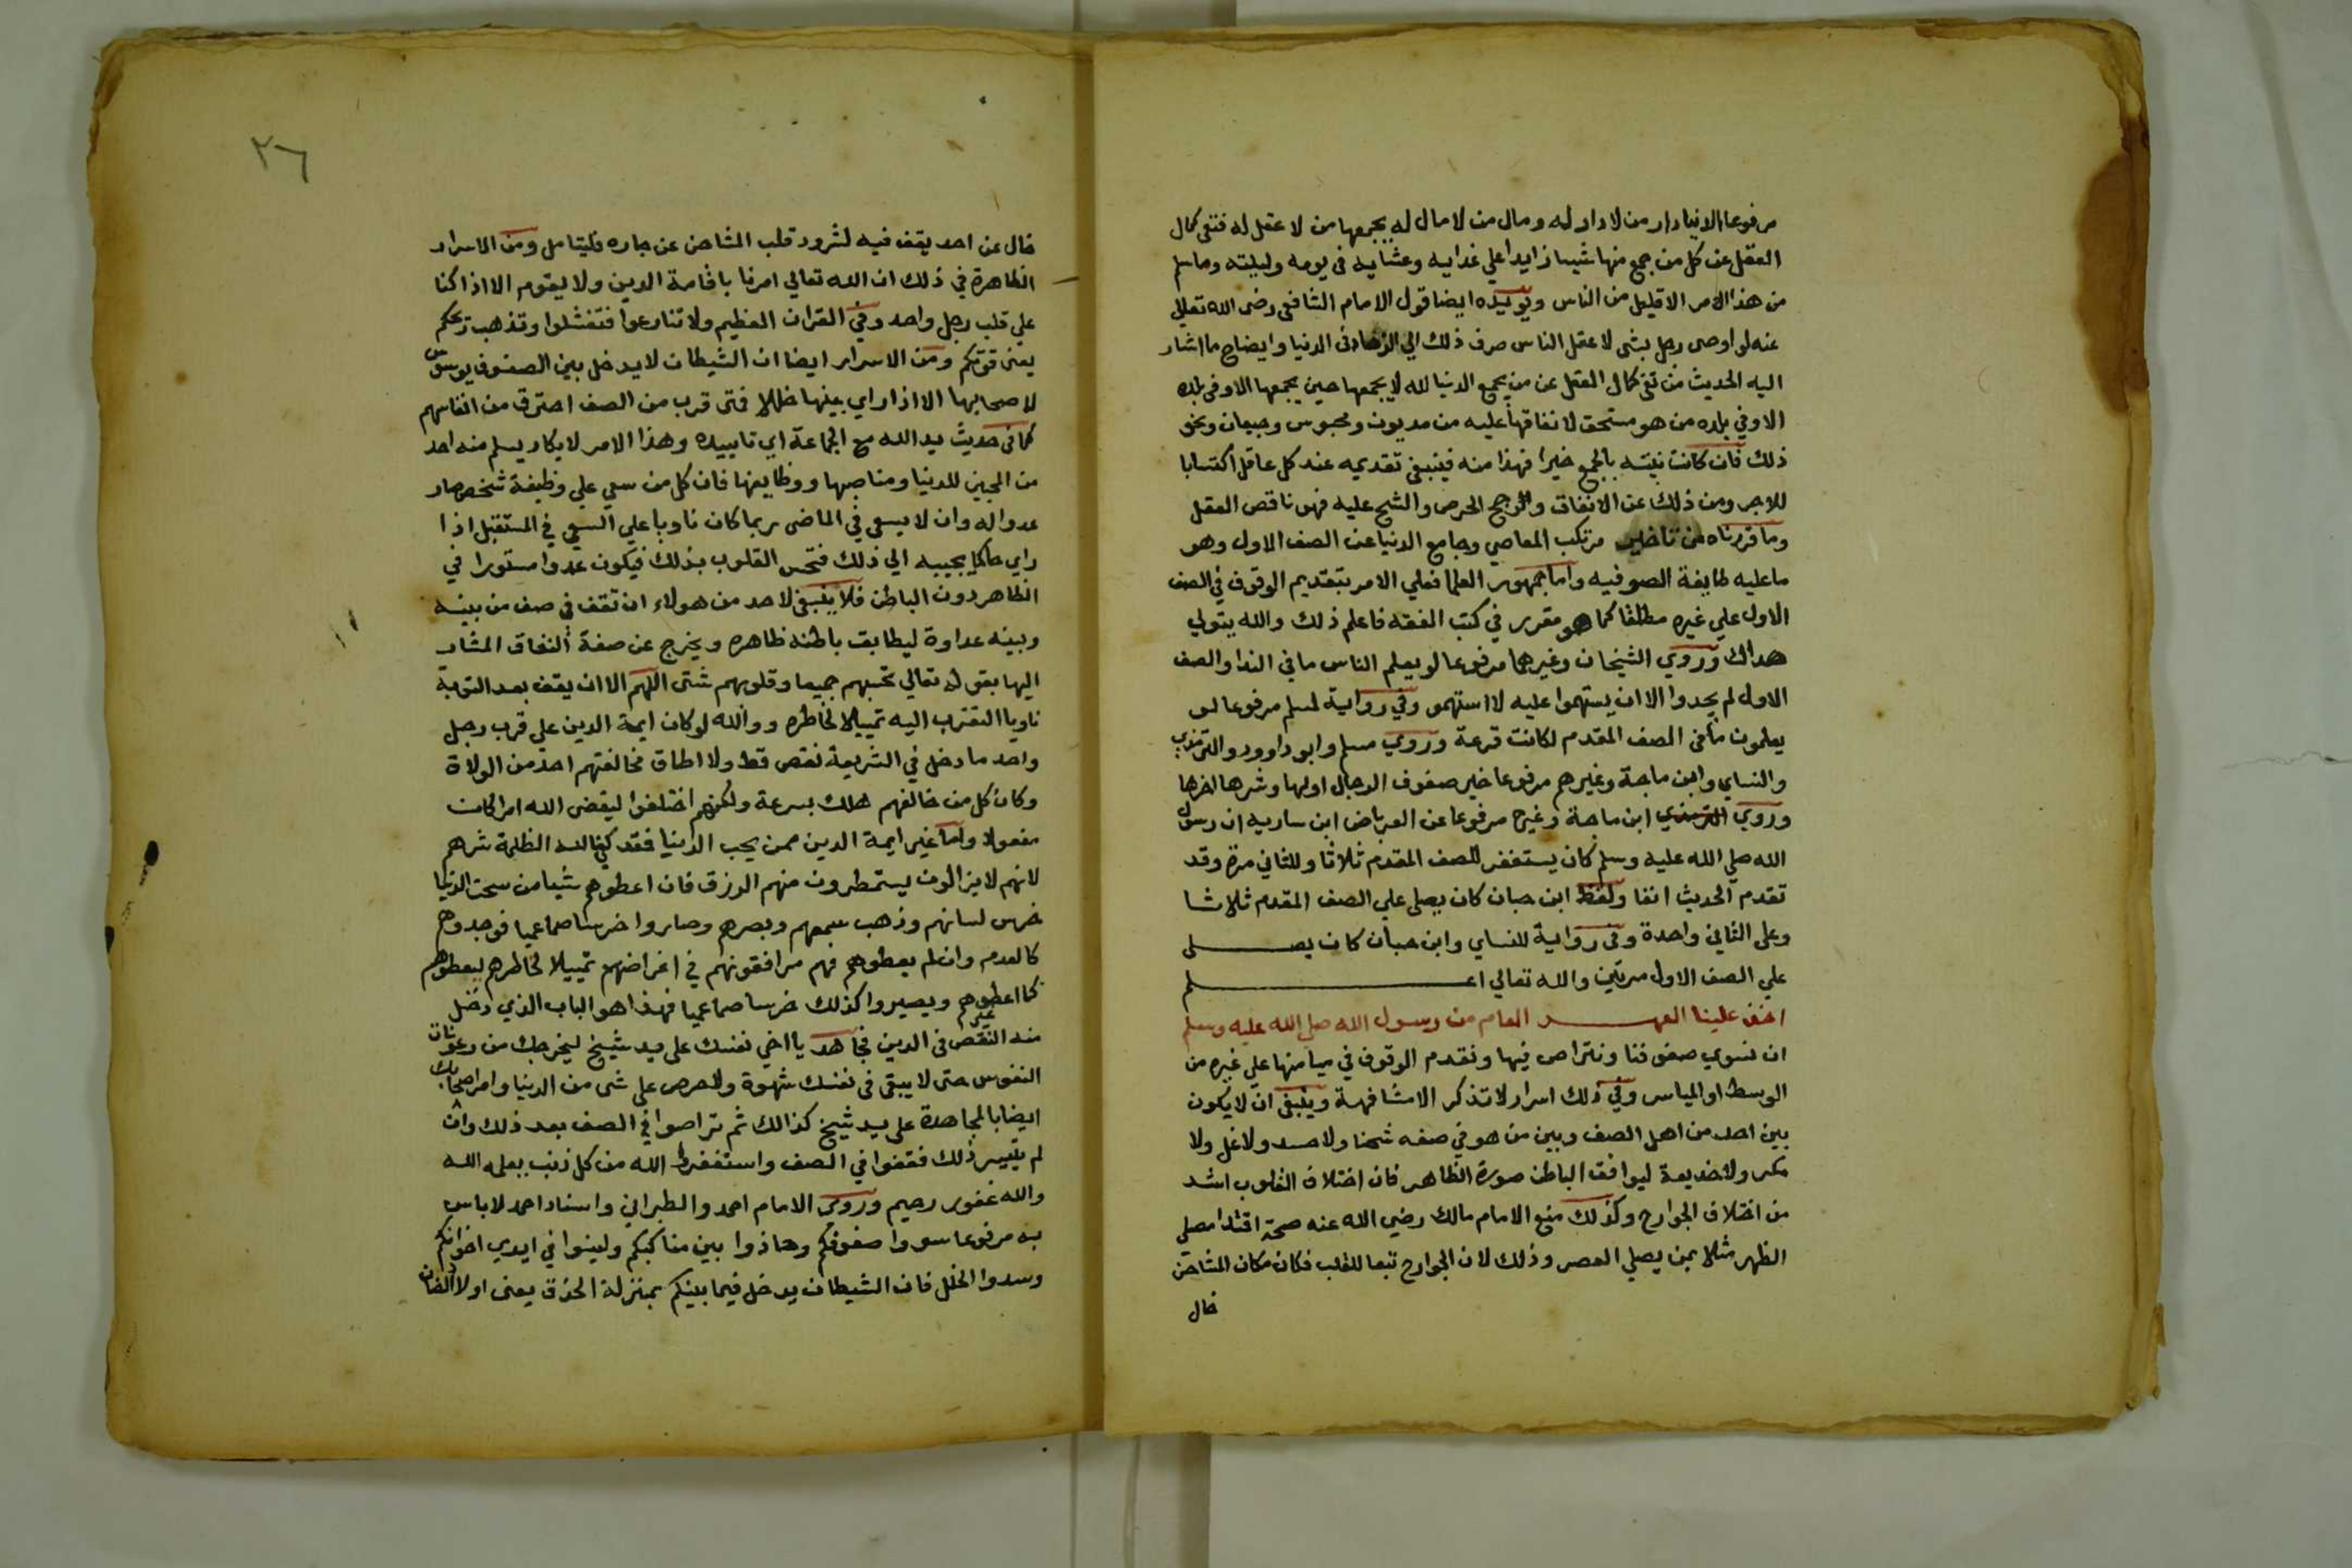 مرفوعا الدنيا دار من لا دار له ومال من لا مال له يجمعها من لا عقل له فنفى كمال
العقل عن كل من جمع منها شيا زايدا علي غدايه وعشايه في يومه وليلته وما سلم
من هذا الامر الا قليل من الناس ويويده ايضا قول الامام الشافعي رضى الله تعالي
عنه لو اوصى رجل بشى لا عقل الناس صرف ذلك الي الزهاد في الدنيا وايضاح ما اشار
اليه الحديث من نفى كمال العقل عن من يجمع الدنيا لله لا يجمعها حين يجمعها الا وفي بلده
الا وفي بلده من هو مستحق لانفاقها عليه من مديون ومحبوس وجيعان ونحو
ذلك فان كانت نيته بالجمع خيرا فهذا منه فينبغي تقديمه عند كل عاقل اكتسابا
للاجر ومن ذلك عن الانفاق والرجح الحرص والشح عليه فهو ناقص العقل
وما قررناه من تاخير مرتكب المعاصي وجامع الدنيا عن الصف الاول وهو
ما عليه طايفة الصوفيه واما جمهور العلما فعلي الامر بتقديم الوقوف في الصف
الاول علي غيره مطلقا كما هو مقرر في كتب الفقه فاعلم ذلك والله يتولي
هداك وروي الشيخان وغيرهما مرفوعا لو يعلم الناس ما في الندا والصف
الاول لم يجدوا الا ان يستهموا عليه لا استهمو وفي رواية لمسلم مرفوعا لو
يعلمون ما في الصف المقدم لكانت قرعة وروي مسلم وابو داوود والترمذي
والنساي وابن ماجة وغيرهم مرفوعا خير صفوف الرجال اولها وشرها اخرها
وروي الترمذي ابن ماجة وغيره مرفوعا عن العرباض ابن ساريه ان رسول
الله صلي الله عليه وسلم كان يستغفر للصف المقدم ثلاثا وللثاني مرة وقد
تقدم الحديث انفا ولفظ ابن حبان كان يصلي علي الصف المقدم ثلاثا
وعلى الثاني واحدة وفي رواية للنساي وابن حبان كان يصلى
علي الصف الاول مرتين والله تعالي اعلم
اخذ علينا العهد العام من رسول الله صلى الله عليه وسلم
ان نسوي صفوفنا ونتراص فيها ونقدم الوقوف في ميامنها علي غيره من
الوسط او المياسر وفي ذلك اسرار لا تذكر الا مشافهة وينبغي ان لا يكون
بين احد من اهل الصف وبين من هو في صفه شحنا ولا حسد ولا غل ولا
مكر ولا خديعة ليوافق الباطن صورة الظاهر فان اختلاف القلوب اشد
من اختلاف الجوارح وكذلك منع الامام مالك رضي الله عنه صحة اقتدا مصلى
الظهر مثلا بمن يصلي العصر وذلك لان الجوارح تبعا للقلب فكان مكان المشاحن
خال
٢٦
خال عن احد يقف فيه لشرود قلب المشاحن عن جاره فليتامل ومن الاسرار
الظاهرة في ذلك ان الله تعالي امرنا باقامة الدين ولا يقوم الا اذا كنا
علي قلب رجل واحد وفي القران العظيم ولا تنازعوا فتفشلوا وتذهب ريحكم
يعني قوتكم ومن الاسرار ايضا ان الشيطان لا يدخل بين الصفوف يوسوس
لاصحابها الا اذا راي بينها خللا فتى قرب من الصف احترق من انفاسهم
كما في حديث يد الله مع الجماعة اي تاييده وهذا الامر لا يكاد يسلم منه احد
من المحبين للدنيا ومناصبها ووظايفها فان كل من سعي علي وظيفة شخص صار
عدوا له وان لا يسعى في الماضى ربما كان ناويا علي السعي في المستقبل اذا
راي حاكما يجيبه الي ذلك فتحس القلوب بذلك فيكون عدوا مستورا في
الظاهر دون الباطن فلا ينبغي لاحد من هولاء ان تقف في صف من بينه
وبينه عداوة ليطابق باطنه ظاهره ويخرج عن صفة النفاق المشار
اليها بقوله تعالي تحسبهم جميعا وقلوبهم شتى اللهم الا ان يقف بعد التوبة
ناويا التقرب اليه تمييلا لخاطره ووالله لو كان ايمة الدين علي قرب رجل
واحد ما دخل في الشريعة نقص قط ولا اطاق مخالفتهم احد من الولاة
وكان كل من خالفهم هلك بسرعة ولكنهم اختلفوا ليقضى الله امرا كان
مفعولا واما غير ايمة الدين ممن يحب الدنيا فقد كفي الله الظلمة شرهم
لانهم لا يزالون يستمطرون منهم الرزق فان اعطوهم شيا من سحت الدنيا
خرس لسانهم وذهب سمعهم وبصرهم وصاروا خرسا صما عميا فوجدوهم
كالعدم وان لم يعطوهم فهم مرافقونهم في اغراضهم تمييلا لخاطرهم ليعطوهم
كما اعطوا غيرهم ويصيروا كذلك خرسا صما عميا فهذا هو الباب الذي دخل
منه النقص في الدين فجاهد يا اخي نفسك على يد شيخ ليخرجك من رعونات
النفوس حتى لا يبقى في نفسك شهوة ولا حرص على شى من الدنيا وامر اصحابك
ايضا بالمجاهدة على يد شيخ كذالك ثم تراصوا في الصف بعد ذلك وان
لم يتيسر ذلك فقفوا في الصف واستغفروا الله من كل ذنب يعلمه الله
والله غفور رحيم وروى الامام احمد والطبراني واسناد احمد لا باس
به مرفوعا سووا صفوفكم وحاذوا بين مناكبكم ولينوا في ايدي اخوانكم
وسدوا الخلل فان الشيطان يدخل فيما بينكم بمنزلة الحذف يعنى اولاد الضان